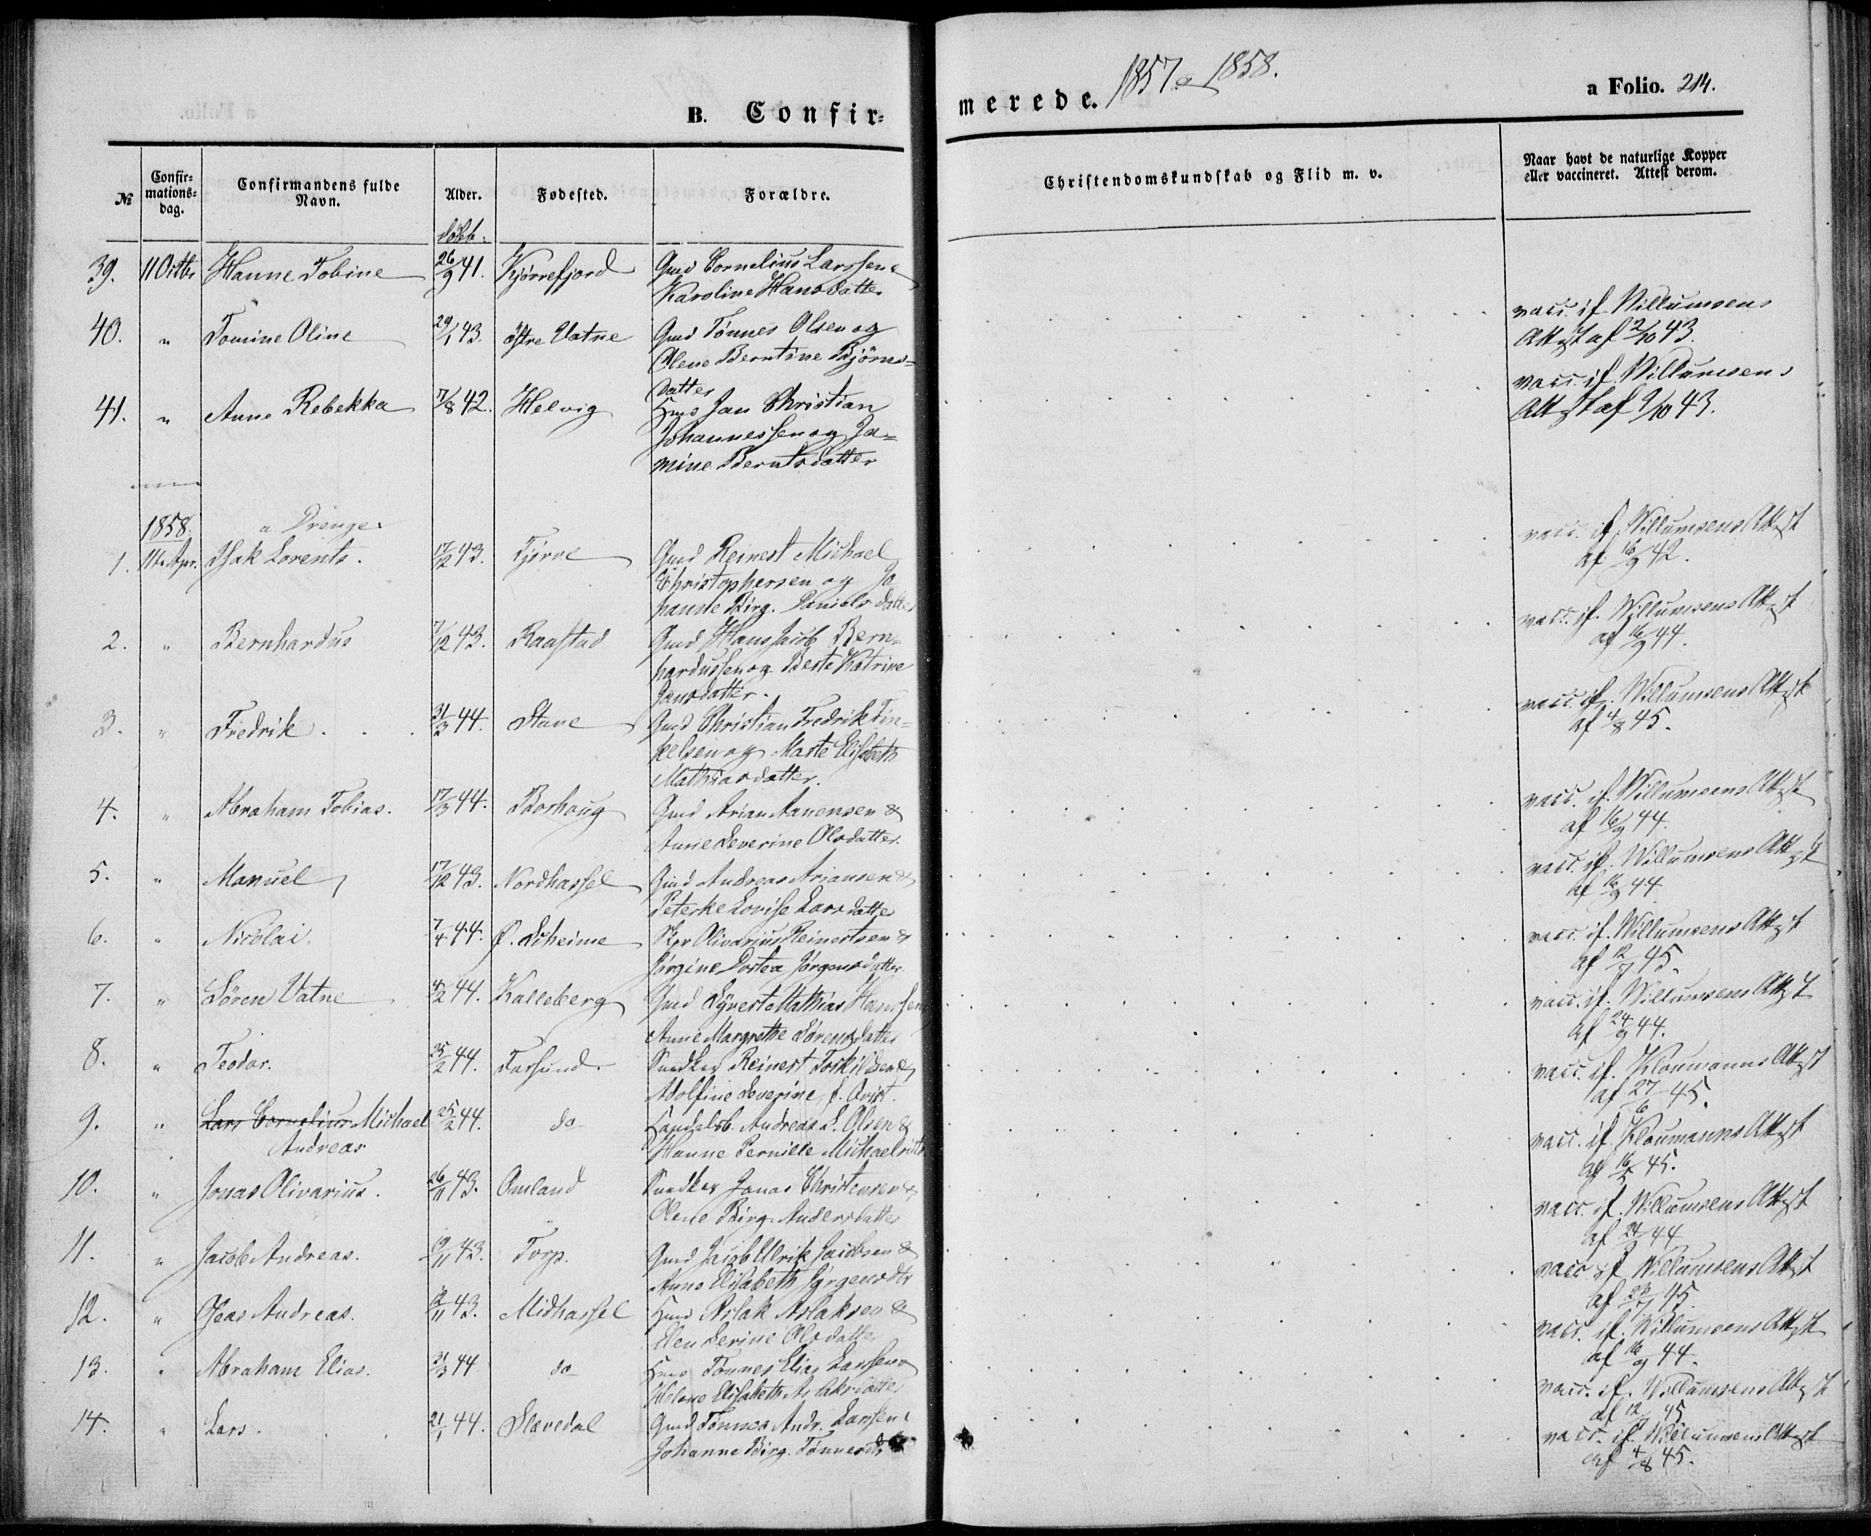 B. Confir-
merede. 1857 & 1858.
a Folio. 214.
№
Confir-
mations-
dag.
Confirmandens fulde
Navn.
Alder.
Fødested.
Forældre.
Christendomskundskab og Flid m. v.
Naar havt de naturlige Kopper
eller vaccineret. Attest derom.
døbt.
39. 11 Octbr Hanne Tobine 26/9 41. Kjørrefjord Gmd Cornelius Larssen &
Karoline Hansdatter
40. " Tomine Oline 29/1 43. østre Vatne Gmd Tønnes Olsen og vacc. if. Villumsens
Olene Berntine Bjørns- Attest af 2/10 43.
datter
41. " Anne Rebekka 7/8 42. Helvig Hmd Jan Christian vacc. if. Villumsens
Johannessen og Ja- Attest af 9/10 43.
mine Berntsdatter
1858. a Drenge.
1. 11te Apr. Isak Lorents. 17/12 43. Tjørve Gmd Reinert Michael vacc. if. Willumsens Attest
Christophersen og Jo- af 16/9 42.
hanne Birg. Danielsdatter
2. " Bernhardus 7/12 43. Raastad Gmd Hans Jacob Bern- vacc. if. Willumsens Attest
hardussen og Berte Katrine af 16/9 44.
Jansdatter.
3. " Fredrik 31/3 44. Stave Gmd Christian Fredrik Fin- vacc. if. Willumsens Attest
kelsen og Marte Elisabeth af 4/8 45.
Mathiasdatter.
4. " Abraham Tobias. 17/3 44. Borhaug Gmd Arian Aanensen & vacc. if. Willumsens Attest
Anne Severine Olsdatter. af 16/9 44.
5. " Manuel 17/12 43. Nordhassel Gmd Andreas Ariansen & vacc. if. Willumsens Attest
Peterke Lovise Larsdatter af 16/9 44.
6. " Nicolai. 7/4 44. Ø. Liheime Olivarius Reinertsen & vacc. if. Willumsens Attest
Jørgine Dortea Jørgensdatter af 12/7 45.
7. " Søren Vatne 4/2 44. Kalleberg Gmd Syvert Mathias Hanssen vacc. if. Willumsens Attest
Anne Margrethe Sørensdatter af 24/9 44.
8. " Teodor. 25/2 44. Farsund. Snedker Reinert Torkildsen & vacc. if. Kloumanns Attest
Adolfine Severine f. Qvist. af 27/6 45.
9. " Lars Cornelius Michael 25/2 44. do Handelsb. Andreas L. Olsen & vacc. if. Kloumanns Attest
Andreas Hanne Pernille Michaelsdtr af 16/5 45.
10. " Jonas Olivarius. 26/11 43. Omland Snedker Jonas Christensen & vacc. if. Willumsens Attest
Olene Birg. Andersdatter af 24/9 44
11. " Jacob Andreas. 19/11 43. Torp. Gmd Jacob Ulrik Jacobsen & vacc. if. Willumsens Attest
Anne Elisabeth Jørgensdtr af 23/7 45.
12. " Oeas Andreas. 12/11 43. Midhassel Hmd Aslak Aslaksen & vacc. if. Willumsens Attest
Elen Serine Olsdatter af 16/9 44.
13. " Abraham Elias. 31/3 44 do Hmd Tønnes Elias Larssen & vacc. if. Willumsens Attest
Helene Elisabeth Aslaksdatter af 12/7 45
14. " Lars. 21/1 44. Slævedal Gmd Tønnes Andr. Larssen & vacc. if. Willumsens Attest
Johanne Birg. Tønnesdtr af 4/8 45.